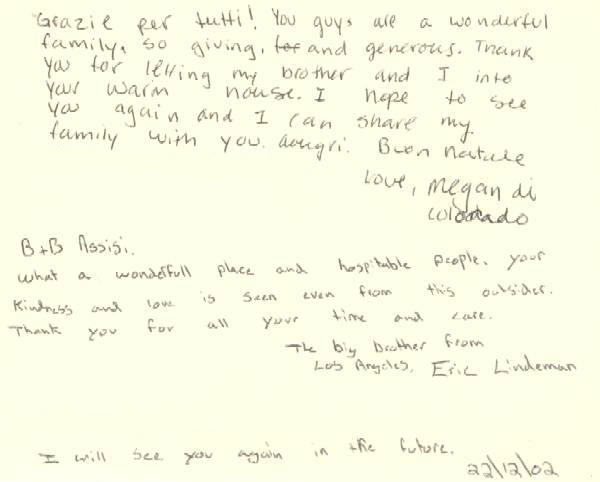 Grazie per tutti! You guys are a wonderful
family, so giving, for and generous. Thank
you for letting my brother and I into
your warm house. I hope to see
you again and I can share my
family with you. Aougri. Buon Natale
Love, Megan di
Colodado
B+B Assisi.
What a wonderfull place and hospitable people. your
Kindness and love is seen even from this outsider.
Thank you for all your time and care.
The big brother from
Los Angeles, Eric Lindeman
I will see you again in the future.
22/12/02